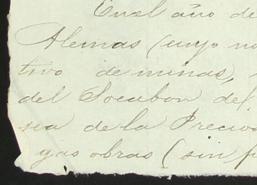 En el año de
Alemas (cuyo no
tivo de minas,
del Socabon del
sia de la Precios
gas obras (sin p